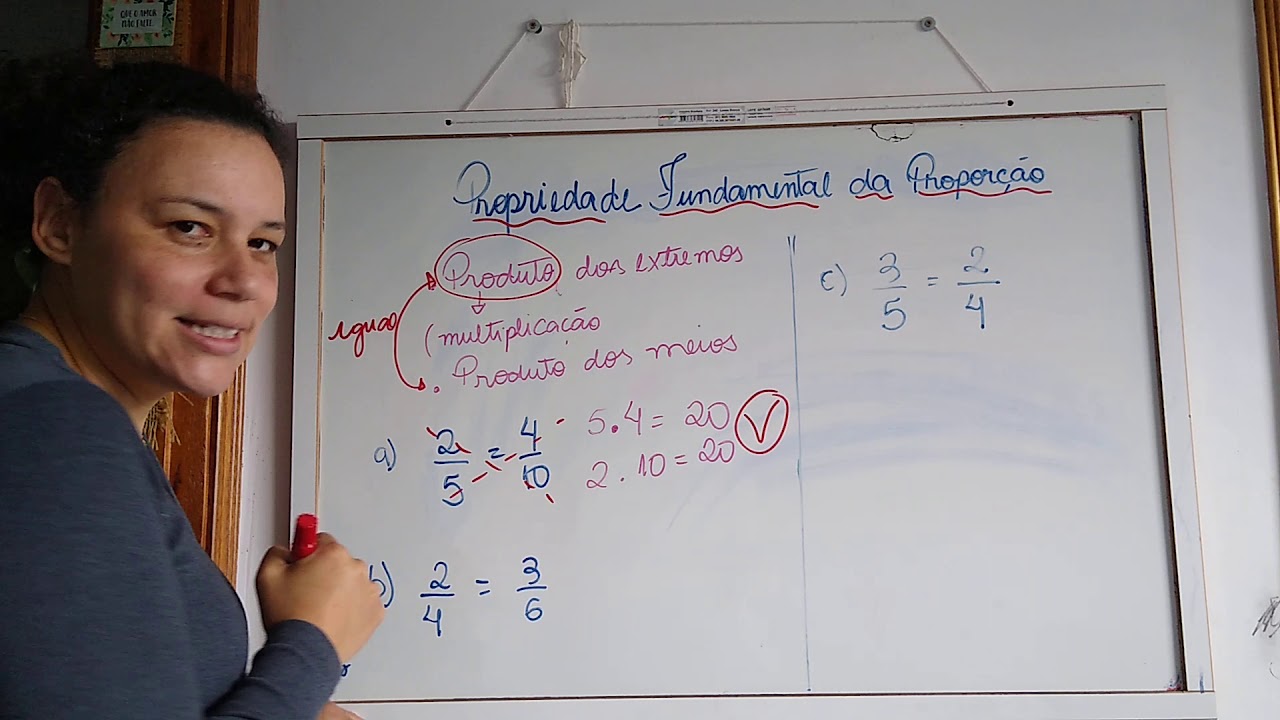 QUE O AMOR
NÃO FALTE
Propriedade Fundamental da Proporção
Produto dos extremos
(multiplicação
igual
. Produto dos meios
a) 2/5 = 4/10
5.4 = 20
2.10 = 20
b) 2/4 = 3/6
c) 3/5 = 2/4